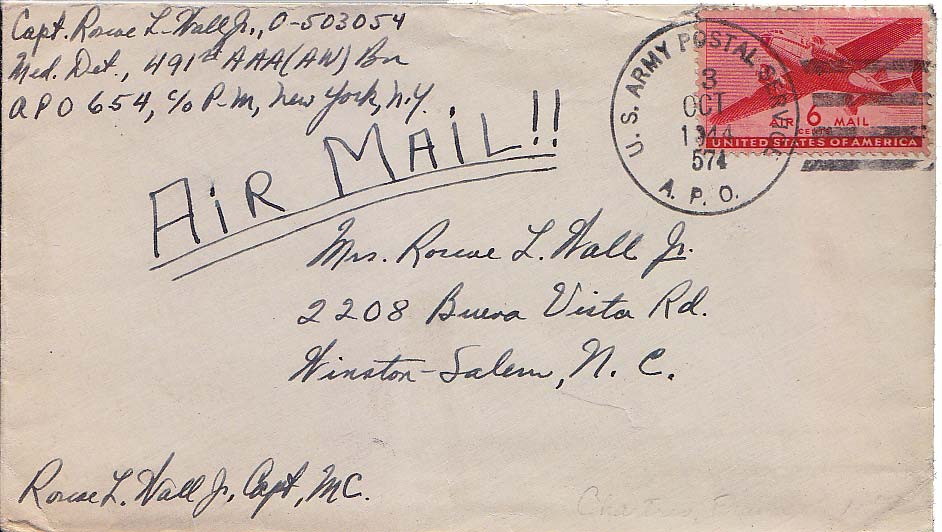 Capt. Roscoe L. Wall Jr., O-503054
Med. Det., 491st AAA(AW) Bn
APO 654, c/o P.M., New York, N.Y.
AIR MAIL!!
U.S. ARMY POSTAL SERVICE
3
OCT
1944
574
A. P. O.
AIR 6 MAIL
CENTS
UNITED STATES OF AMERICA
Mrs. Roscoe L. Wall Jr.
2208 Buena Vista Rd.
Winston-Salem, N. C.
Roscoe L. Wall Jr, Capt, MC.